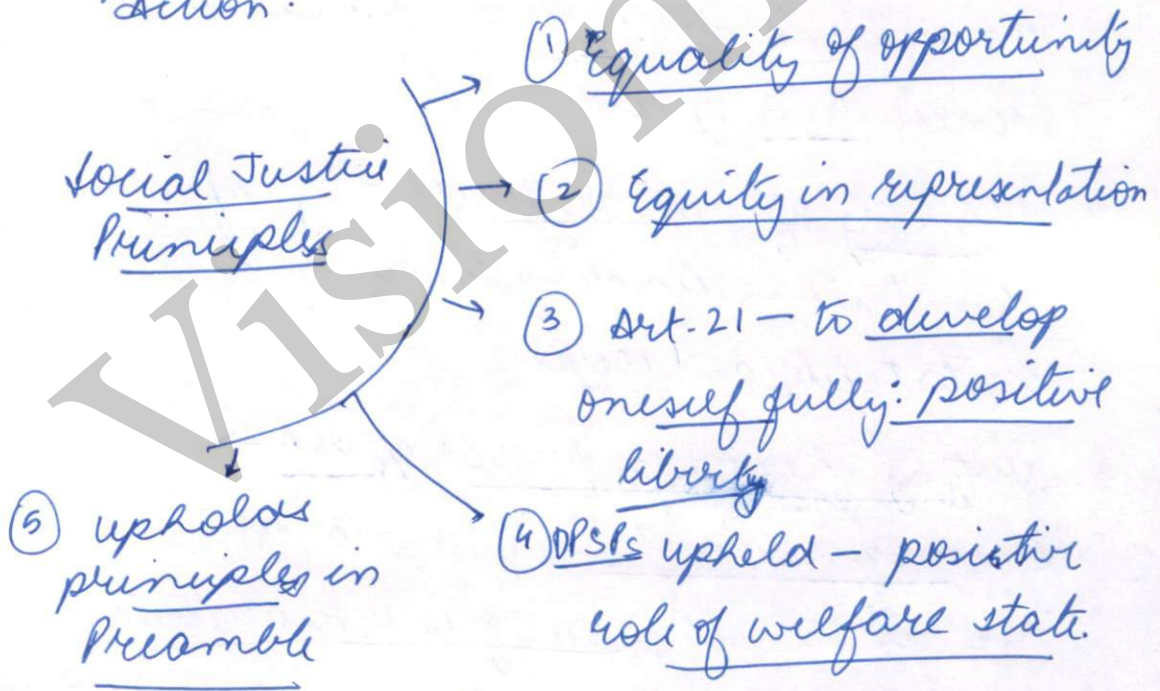 action.
Social Justice
Principles
① Equality of opportunity
② Equity in representation
③ Art. 21 – to develop
oneself fully: positive
liberty
④ DPSPs upheld – positive
role of welfare state.
⑤ upholds
principles in
Preamble
Vision